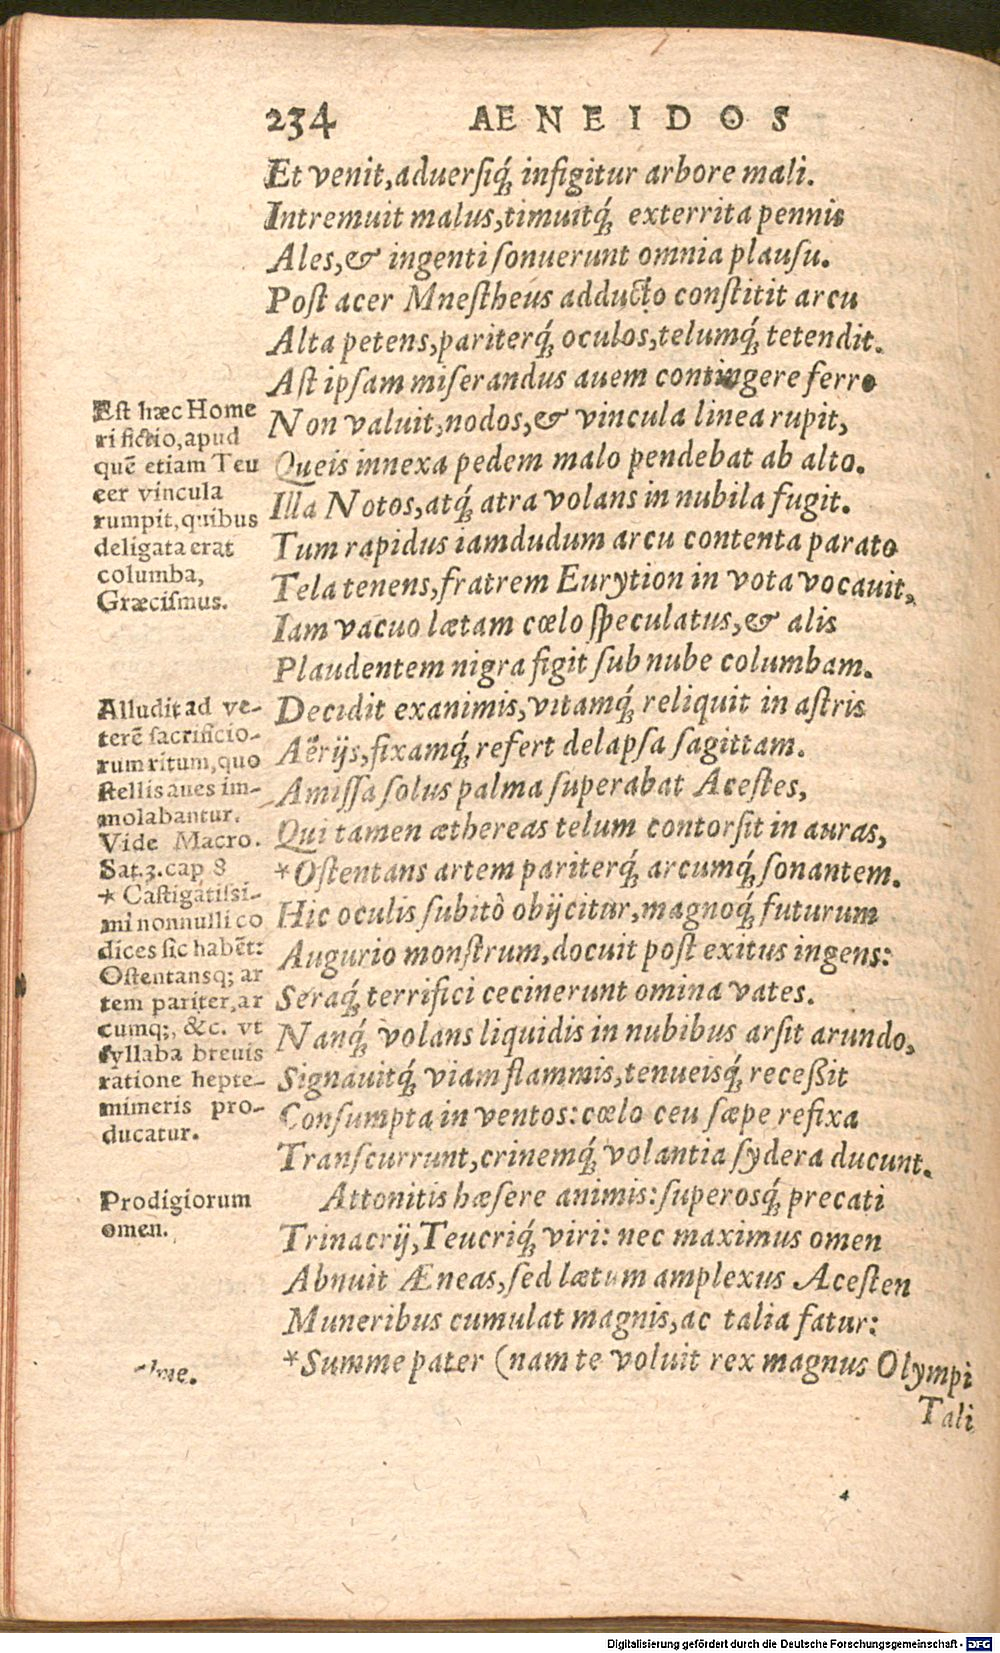 234 AENEIDOS
Et venit, aduersiq́; infigitur arbore mali.
Intremuit malus, timuitq́; exterrita pennis
Ales, & ingenti sonuerunt omnia plausu.
Post acer Mnestheus adducto constitit arcu
Alta petens, pariterq́; oculos, telumq́; tetendit.
Ast ipsam miserandus auem contingere ferro
Non valuit, nodos, & vincula linea rupit,
Queis innexa pedem malo pendebat ab alto.
Illa Notos, atq́; atra volans in nubila fugit.
Tum rapidus iamdudum arcu contenta parato
Tela tenens, fratrem Eurytion in vota vocauit,
Iam vacuo lætam cœlo speculatus, & alis
Plaudentem nigra figit sub nube columbam.
Decidit exanimis, vitamq́; reliquit in astris
Aërijs, fixamq́; refert delapsa sagittam.
Amissa solus palma superabat Acestes,
Qui tamen æthereas telum contorsit in auras,
*Ostentans artem pariterq́; arcumq́; sonantem.
Hic oculis subitò obijcitur, magnoq́; futurum
Augurio monstrum, docuit post exitus ingens:
Seraq́; terrifici cecinerunt omina vates.
Nanq́; volans liquidis in nubibus arsit arundo,
Signauitq́; viam flammis, tenueisq́; receßit
Consumpta in ventos: cœlo ceu sæpe refixa
Transcurrunt, crinemq́; volantia sydera ducunt.
Attonitis hæsere animis: superosq́; precati
Trinacrij, Teucriq́; viri: nec maximus omen
Abnuit Æneas, sed lætum amplexus Acesten
Muneribus cumulat magnis, ac talia fatur:
*Summe pater (nam te voluit rex magnus Olympi
Tali
Est hæc Home
ri fictio, apud
quē etiam Teu
cer vincula
rumpit, quibus
deligata erat
columba,
Græcismus.
Alludit ad ve-
terē sacrificio-
rum ritum, quo
stellis aues im-
molabantur.
Vide Macro.
Sat. 3. cap 8
* Castigatissi-
mi nonnulli co
dices sic habēt:
Ostentansq; ar
tem pariter, ar
cumq;, &c. vt
syllaba breuis
ratione hepte-
mimeris pro-
ducatur.
Prodigiorum
omen.
4
Digitalisierung gefördert durch die Deutsche Forschungsgemeinschaft - DFG